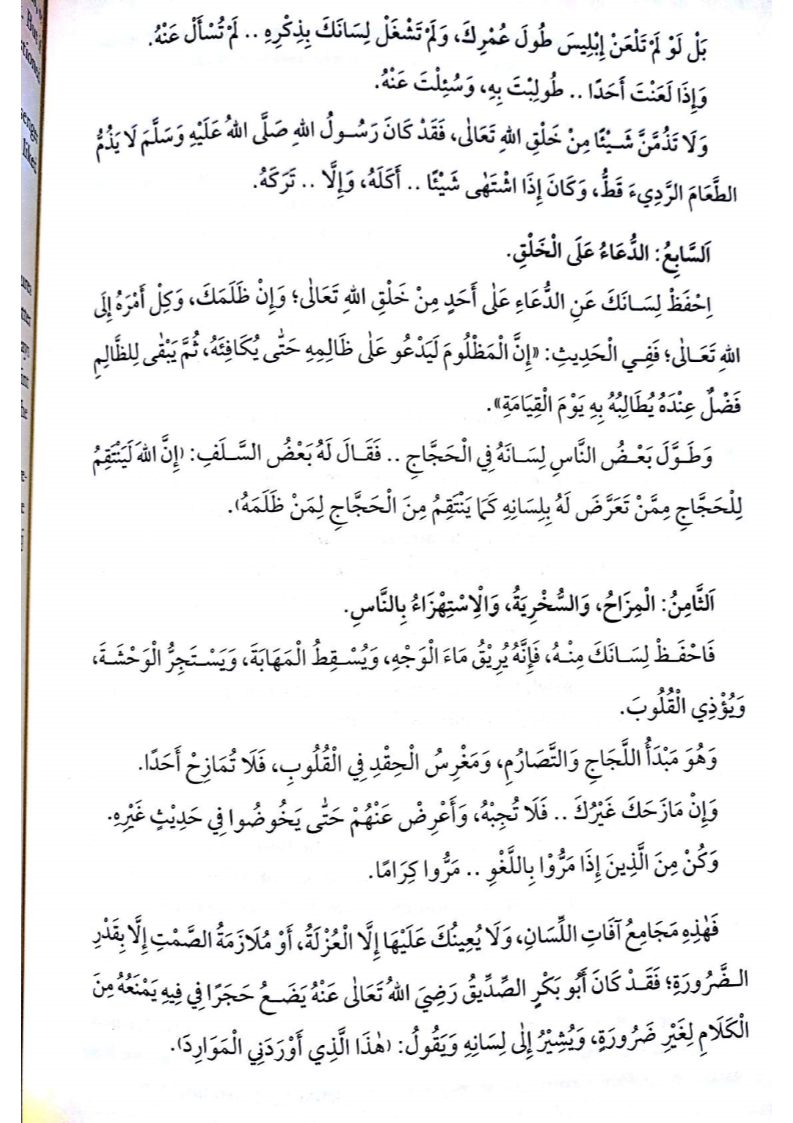 . But
ctions
senge
likes
ı
r
r
r
he
e-
e
f
بَلْ لَوْ لَمْ تَلْعَنْ إِبْلِيسَ طُولَ عُمْرِكَ، وَلَمْ تَشْغَلْ لِسَانَكَ بِذِكْرِهِ .. لَمْ تُسْأَلْ عَنْهُ.
وَإِذَا لَعَنْتَ أَحَدًا .. طُولِبْتَ بِهِ، وَسُئِلْتَ عَنْهُ.
وَلَا تَذُمَّنَّ شَيْئًا مِنْ خَلْقِ اللهِ تَعَالٰى، فَقَدْ كَانَ رَسُولُ اللهِ صَلَّى اللهُ عَلَيْهِ وَسَلَّمَ لَا يَذُمُّ
الطَّعَامَ الرَّدِيءَ قَطُّ، وَكَانَ إِذَا اشْتَهٰى شَيْئًا .. أَكَلَهُ، وَإِلَّا .. تَرَكَهُ.
اَلسَّابِعُ: الدُّعَاءُ عَلَى الْخَلْقِ.
اِحْفَظْ لِسَانَكَ عَنِ الدُّعَاءِ عَلٰى أَحَدٍ مِنْ خَلْقِ اللهِ تَعَالٰى؛ وَإِنْ ظَلَمَكَ، وَكِلْ أَمْرَهُ إِلَى
اللهِ تَعَالٰى؛ فَفِي الْحَدِيثِ: «إِنَّ الْمَظْلُومَ لَيَدْعُو عَلٰى ظَالِمِهِ حَتّٰى يُكَافِئَهُ، ثُمَّ يَبْقٰى لِلظَّالِمِ
فَضْلٌ عِنْدَهُ يُطَالِبُهُ بِهِ يَوْمَ الْقِيَامَةِ».
وَطَوَّلَ بَعْضُ النَّاسِ لِسَانَهُ فِي الْحَجَّاجِ .. فَقَالَ لَهُ بَعْضُ السَّلَفِ: (إِنَّ اللهَ لَيَنْتَقِمُ
لِلْحَجَّاجِ مِمَّنْ تَعَرَّضَ لَهُ بِلِسَانِهِ كَمَا يَنْتَقِمُ مِنَ الْحَجَّاجِ لِمَنْ ظَلَمَهُ).
اَلثَّامِنُ: الْمِزَاحُ، وَالسُّخْرِيَةُ، وَالْاِسْتِهْزَاءُ بِالنَّاسِ.
فَاحْفَظْ لِسَانَكَ مِنْهُ، فَإِنَّهُ يُرِيْقُ مَاءَ الْوَجْهِ، وَيُسْقِطُ الْمَهَابَةَ، وَيَسْتَجِرُّ الْوَحْشَةَ،
وَيُؤْذِي الْقُلُوبَ.
وَهُوَ مَبْدَأُ اللَّجَاجِ وَالتَّصَارُمِ، وَمَغْرِسُ الْحِقْدِ فِي الْقُلُوبِ، فَلَا تُمَازِحْ أَحَدًا.
وَإِنْ مَازَحَكَ غَيْرُكَ .. فَلَا تُجِبْهُ، وَأَعْرِضْ عَنْهُمْ حَتّٰى يَخُوضُوا فِي حَدِيْثٍ غَيْرِهِ.
وَكُنْ مِنَ الَّذِينَ إِذَا مَرُّوْا بِاللَّغْوِ .. مَرُّوا كِرَامًا.
فَهٰذِهِ مَجَامِعُ آفَاتِ اللِّسَانِ، وَلَا يُعِينُكَ عَلَيْهَا إِلَّا الْعُزْلَةُ، أَوْ مُلَازَمَةُ الصَّمْتِ إِلَّا بِقَدْرِ
الضَّرُورَةِ؛ فَقَدْ كَانَ أَبُو بَكْرٍ الصِّدِّيقُ رَضِيَ اللهُ تَعَالٰى عَنْهُ يَضَعُ حَجَرًا فِي فِيهِ يَمْنَعُهُ مِنَ
الْكَلَامِ لِغَيْرِ ضَرُورَةٍ، وَيُشِيْرُ إِلٰى لِسَانِهِ وَيَقُولُ: (هٰذَا الَّذِي أَوْرَدَنِي الْمَوَارِدَ).